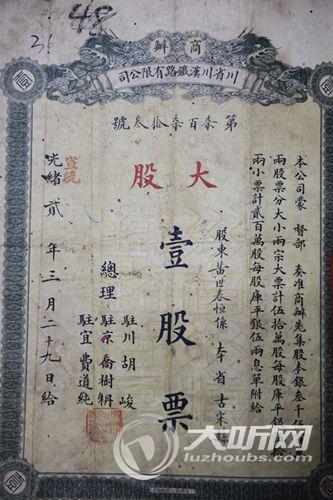 48
36
商辦
川省川漢鐵路有限公司
第叁百叁拾叁號
本公司蒙 督部 奏准商辦先集股本銀叁千伍
兩股票分大小兩宗大票計伍拾萬股每股庫平銀
兩小票計貳百萬股每股庫平銀伍兩息單附給
股東 世春恒係 本省古宋
大股
壹股票
駐川胡峻
總理 駐京喬樹枬
駐宜費道純
宣統
光緒貳年三月二十九日給
壹
壹
大听网
luzhoubs.com